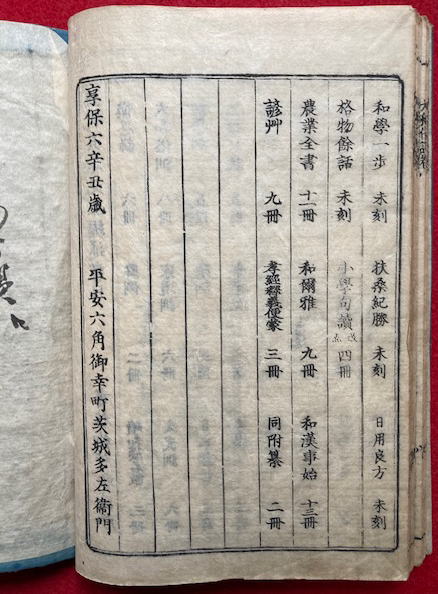 和學一步 未刻 扶桑紀勝 未刻 日用良方 未刻
格物餘話 未刻 小學句讀 改点 四冊
農業全書 十一冊 和爾雅 九冊 和漢事始 十三冊
諺艸 九冊 孝經釋義便蒙 三冊 同附纂 二冊
享保六辛丑歳 平安六角御幸町茨城多左衞門